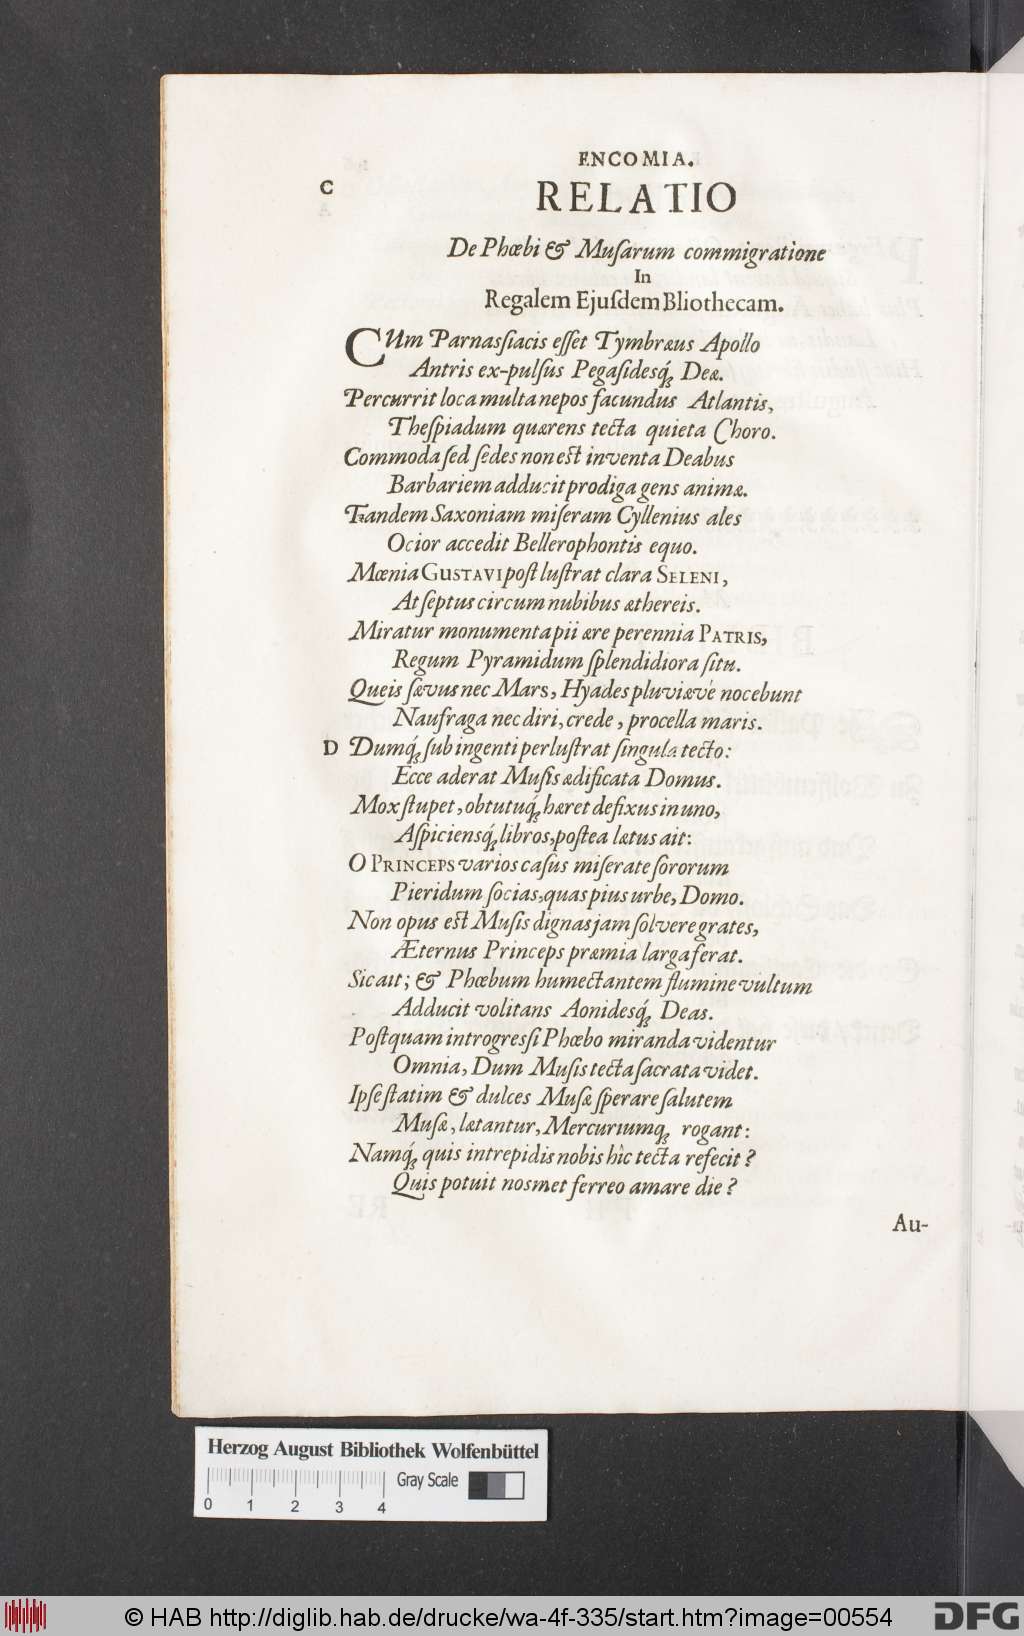 ENCOMIA.
C
RELATIO
De Phœbi & Muſarum commigratione
In
Regalem Ejuſdem Bliothecam.
CUm Parnaſsiacis eſſet Tymbræus Apollo
Antris ex-pulſus Pegaſidesq́; Deæ.
Percurrit loca multa nepos facundus Atlantis,
Theſpiadum quærens tecta quieta Choro.
Commoda ſed ſedes non eſt inventa Deabus
Barbariem adducit prodiga gens animæ.
Tandem Saxoniam miſeram Cyllenius ales
Ocior accedit Bellerophontis equo.
Mœnia GUSTAVI poſt luſtrat clara SELENI,
At ſeptus circum nubibus æthereis.
Miratur monumenta pii ære perennia PATRIS,
Regum Pyramidum ſplendidiora ſitu.
Queis ſævus nec Mars, Hyades pluviæve nocebunt
Naufraga nec diri, crede, procella maris.
D Dumq́; ſub ingenti perluſtrat ſingula tecto:
Ecce aderat Muſis ædificata Domus.
Mox ſtupet, obtutuq́; hæret defixus in uno,
Aſpiciensq́; libros, poſtea lætus ait:
O PRINCEPS varios caſus miſerate ſororum
Pieridum ſocias, quas pius urbe, Domo.
Non opus eſt Muſis dignas jam ſolvere grates,
Æternus Princeps præmia larga ferat.
Sic ait; & Phœbum humectantem flumine vultum
Adducit volitans Aonidesq́; Deas.
Poſtquam introgreſſi Phœbo miranda videntur
Omnia, Dum Muſis tecta ſacrata videt.
Ipſe ſtatim & dulces Muſæ ſperare ſalutem
Muſæ, lætantur, Mercuriumq; rogant:
Namq́; quis intrepidis nobis hîc tecta refecit?
Quis potuit nosmet ferreo amare die?
Au-
Herzog August Bibliothek Wolfenbüttel
Gray Scale
0 1 2 3 4
© HAB http://diglib.hab.de/drucke/wa-4f-335/start.htm?image=00554
DFG